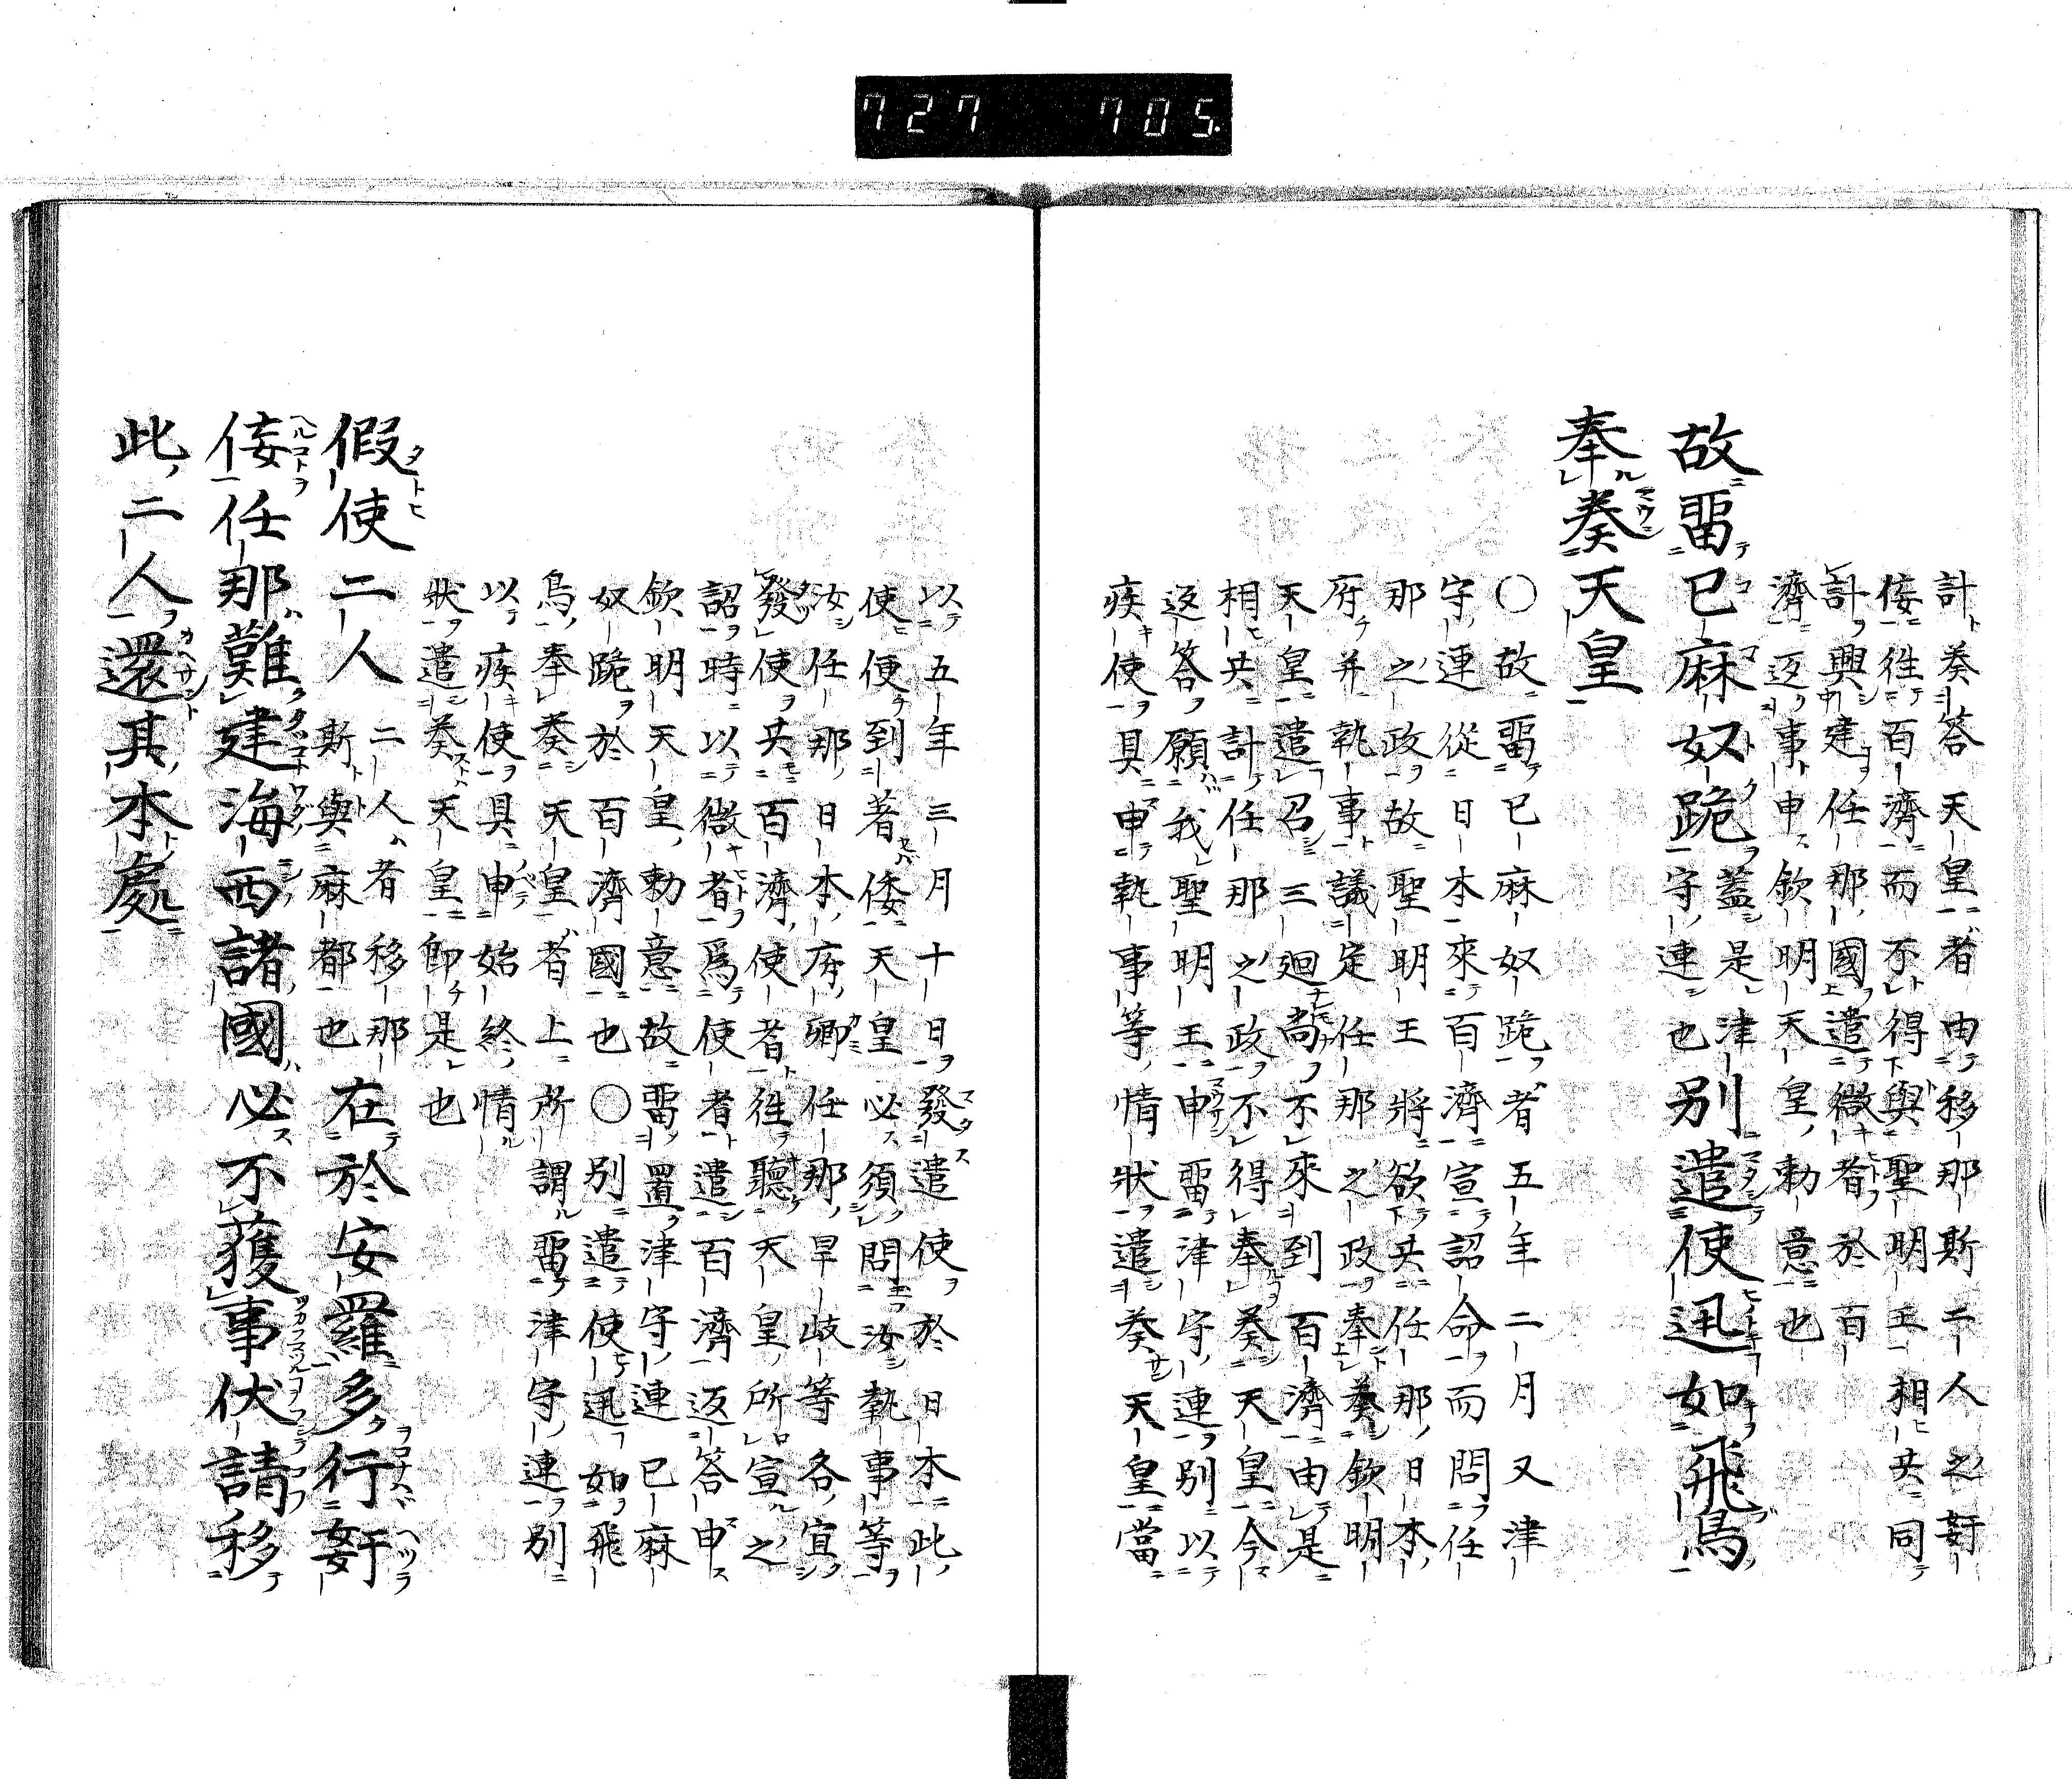 727 705.
計奏答天皇者由移那斯二人之姧
侫徃百濟而不得與聖明王相共同
計興建任那國遣微者於百
濟返事申欽明天皇勅意也
故畱已麻奴跪蓋是津守連也别遣使迅如飛鳥
奉奏天皇
○故畱已麻奴跪者五年二月又津
守連從日本來百濟宣詔命而問任
那之政故聖明王將欲共任那日本
府并執事議定任那之政奉奏欽明
天皇遣召三廻尚不來到百濟由是
相共計任那之政不得奉奏天皇今
返答願我聖明王申畱津守連别以
疾使具申執事等情狀遣奏天皇當
以五年三月十日發遣使於日本此
使便到著倭天皇必須問汝執事等
汝任那日本府卿任那旱岐等各宜
發使共百濟使者徃聽天皇所宣之
詔時以微者爲使者遣百濟返答申
欽明天皇勅意故畱置津守連已麻
奴跪於百濟國也○别遣使迅如飛
鳥奉奏天皇者上所謂畱津守連别
以疾使具申始終情
狀遣奏天皇卽是也
假使二人二人者移那斯與麻都也在於安羅多行姧
侫任那難建海西諸國必不獲事伏請移
此二人還其本處